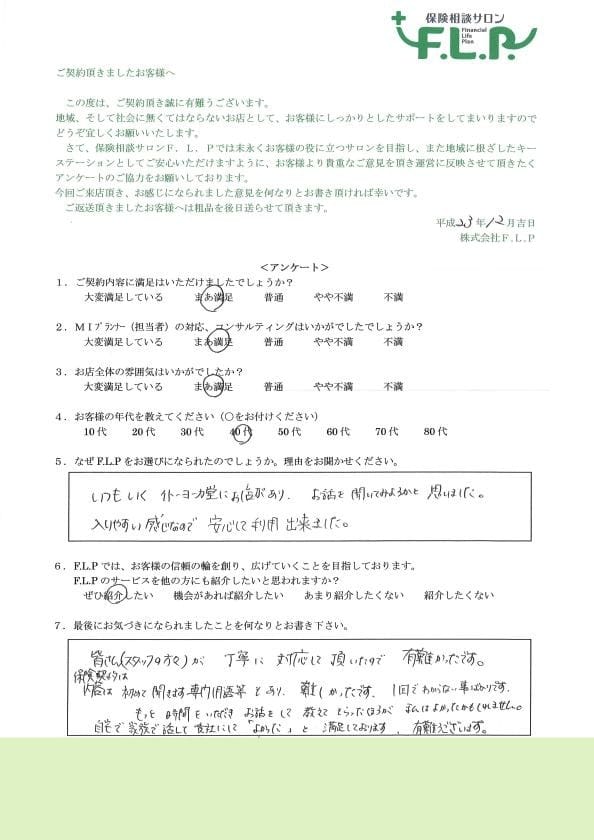 保険相談サロン
F.L.P.
Financial
Life
Plan
ご契約頂きましたお客様へ
この度は、ご契約頂き誠に有難うございます。
地域、そして社会に無くてはならないお店として、お客様にしっかりとしたサポートをしてまいりますので
どうぞ宜しくお願いいたします。
さて、保険相談サロンF．L．Pでは末永くお客様の役に立つサロンを目指し、また地域に根ざしたキー
ステーションとしてご安心いただけますように、お客様より貴重なご意見を頂き運営に反映させて頂きたく
アンケートのご協力をお願いしております。
今回ご来店頂き、お感じになられました意見を何なりとお書き頂ければ幸いです。
ご返送頂きましたお客様へは粗品を後日送らせて頂きます。
平成23年12月吉日
株式会社F.L.P
＜アンケート＞
1．ご契約内容に満足はいただけましたでしょうか？
大変満足している まあ満足 普通 やや不満 不満
2．MIプランナー（担当者）の対応、コンサルティングはいかがでしたでしょうか？
大変満足している まあ満足 普通 やや不満 不満
3．お店全体の雰囲気はいかがでしたか？
大変満足している まあ満足 普通 やや不満 不満
4．お客様の年代を教えてください（○をお付けください）
10代 20代 30代 40代 50代 60代 70代 80代
5．なぜF.L.Pをお選びになられたのでしょうか。理由をお聞かせください。
いつもいく イトーヨーカ堂にお店があり、お話を聞いてみようかと思いました。
入りやすい感じなので 安心して利用出来ました。
6．F.L.Pでは、お客様の信頼の輪を創り、広げていくことを目指しております。
F.L.Pのサービスを他の方にも紹介したいと思われますか？
ぜひ紹介したい 機会があれば紹介したい あまり紹介したくない 紹介したくない
7．最後にお気づきになられましたことを何なりとお書き下さい。
皆さん(スタッフの方々)が 丁寧に対応して頂いたので 有難かったです。
保険契約は
内容は 初めて聞きます専門用語等とあり、難しかったです。1回でわからない事ばかりです。
もっと時間をいただき お話をして 教えてもらったほうが 私はよかったかもしれません。
自宅で家族で話して 貴社にして「よかった」と 満足しております。有難うございます。